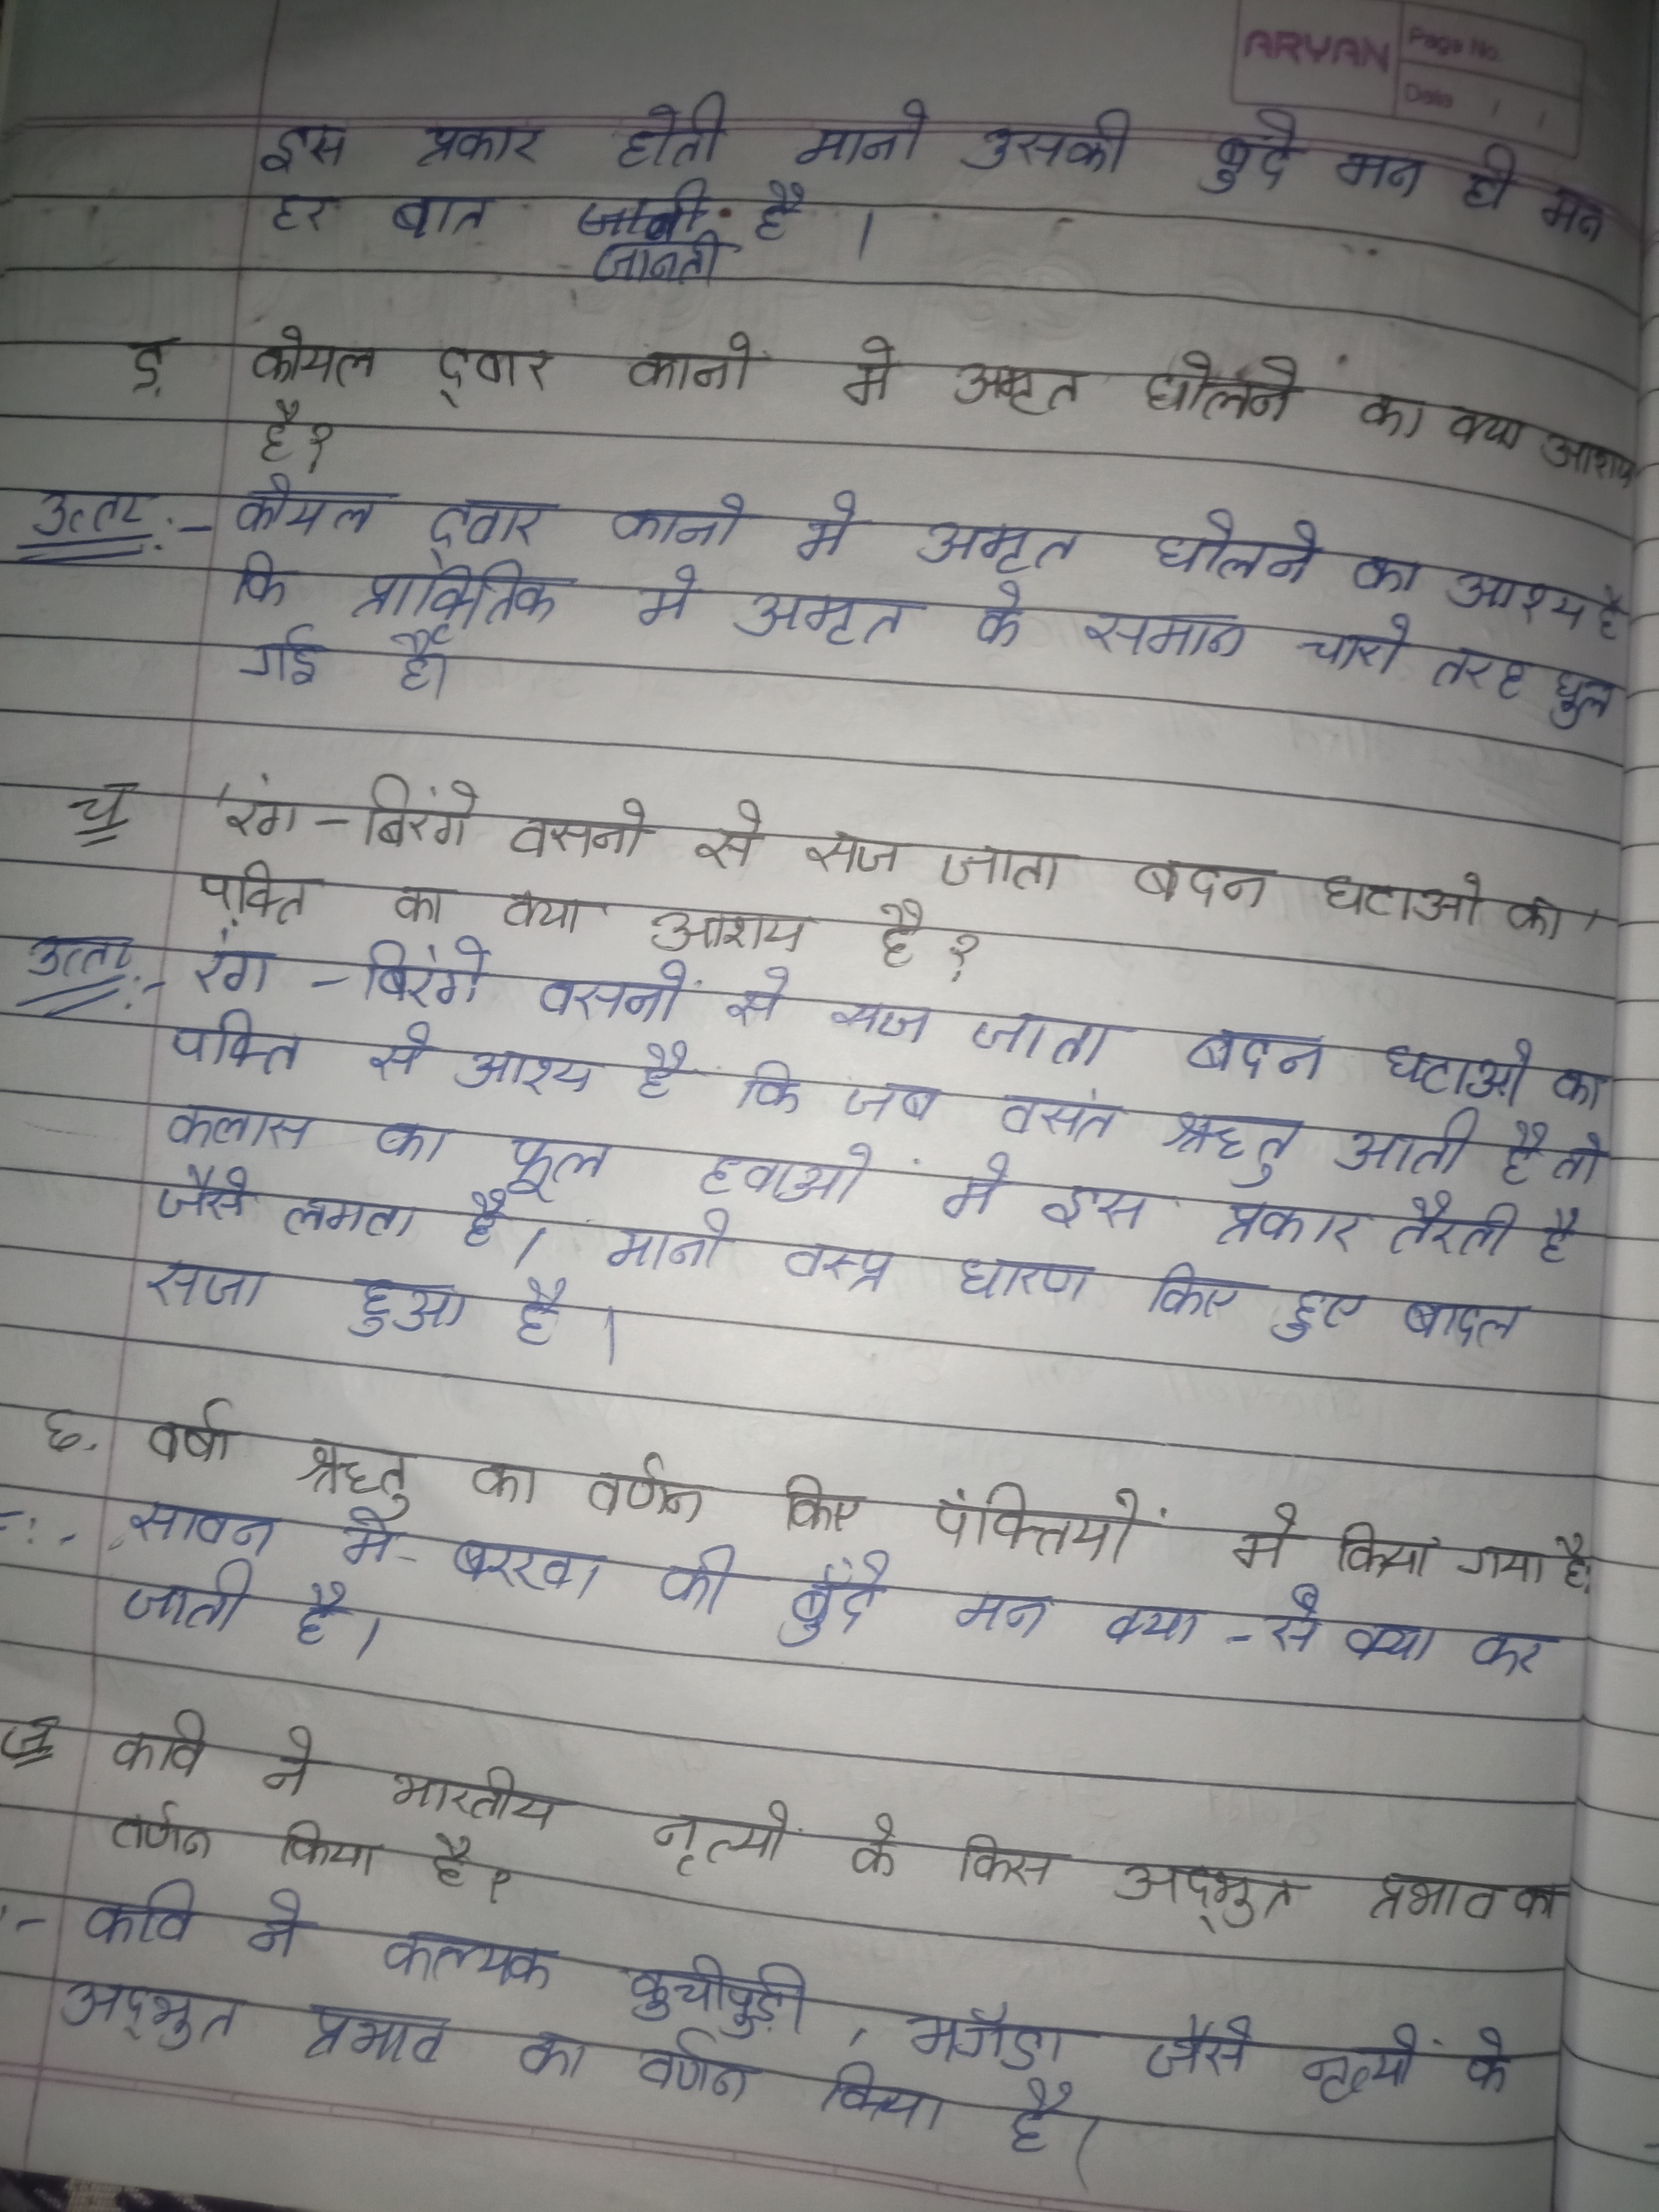 ARYAN
Page No.
Date / /
इस प्रकार होती मानो उसकी बुंदे मन ही मन
हर बात है ।
जानती
ड़. कोयल द्वार कानो मे अमृत घोलने का क्या आशय
है?
उत्तर :- कोयल द्वार कानो मे अमृत घोलने का आश्य है
कि प्राक्रितिक मे अमृत के समान चारो तरह घुल
गई है।
च 'रंग - बिरंगे वसनो से सज जाता बदन घटाओ का'
पंक्ति का क्या आशय है ?
उत्तर :- रंग - बिरंगे वसनों से सज जाता बदन घटाओ का
पक्ति से आश्य है कि जब वसंत ऋहतु आती है तो
कलास का फूल हवाओ मे इस प्रकार तैरती है
जैसे लगता है। मानो वस्त्र धारण किए हुए बादल
सजा हुआ है ।
छ. वर्षा ऋहतु का वर्णन किए पंक्तियों मे किया गया है।
-:- सावन मे बरखा की बुँदे मन क्या - से क्या कर
जाती है ।
ज कवि ने भारतीय नृत्यो के किस अद्भुत प्रभाव का
वर्णन किया है ?
:- कवि ने कत्थक कुचीपुड़ी , जैसे नृत्यों के
अद्भुत प्रभाव का वर्णन किया है ।